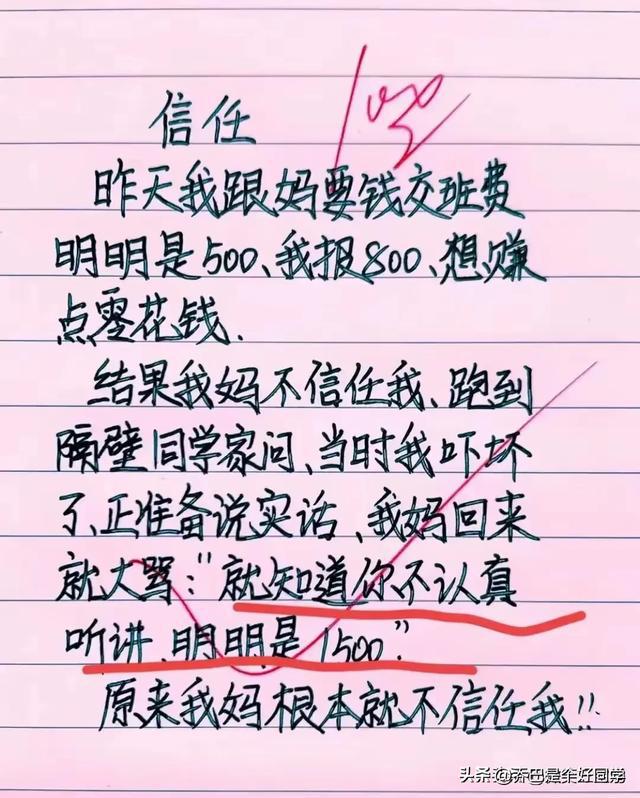 100
信任
昨天我跟妈要钱交班费
明明是500、我报800、想赚
点零花钱.
结果我妈不信任我、跑到
隔壁同学家问、当时我吓坏
了、正准备说实话、我妈回来
就大骂:"就知道你不认真
听讲、明明是1500".
原来我妈根本就不信任我!!